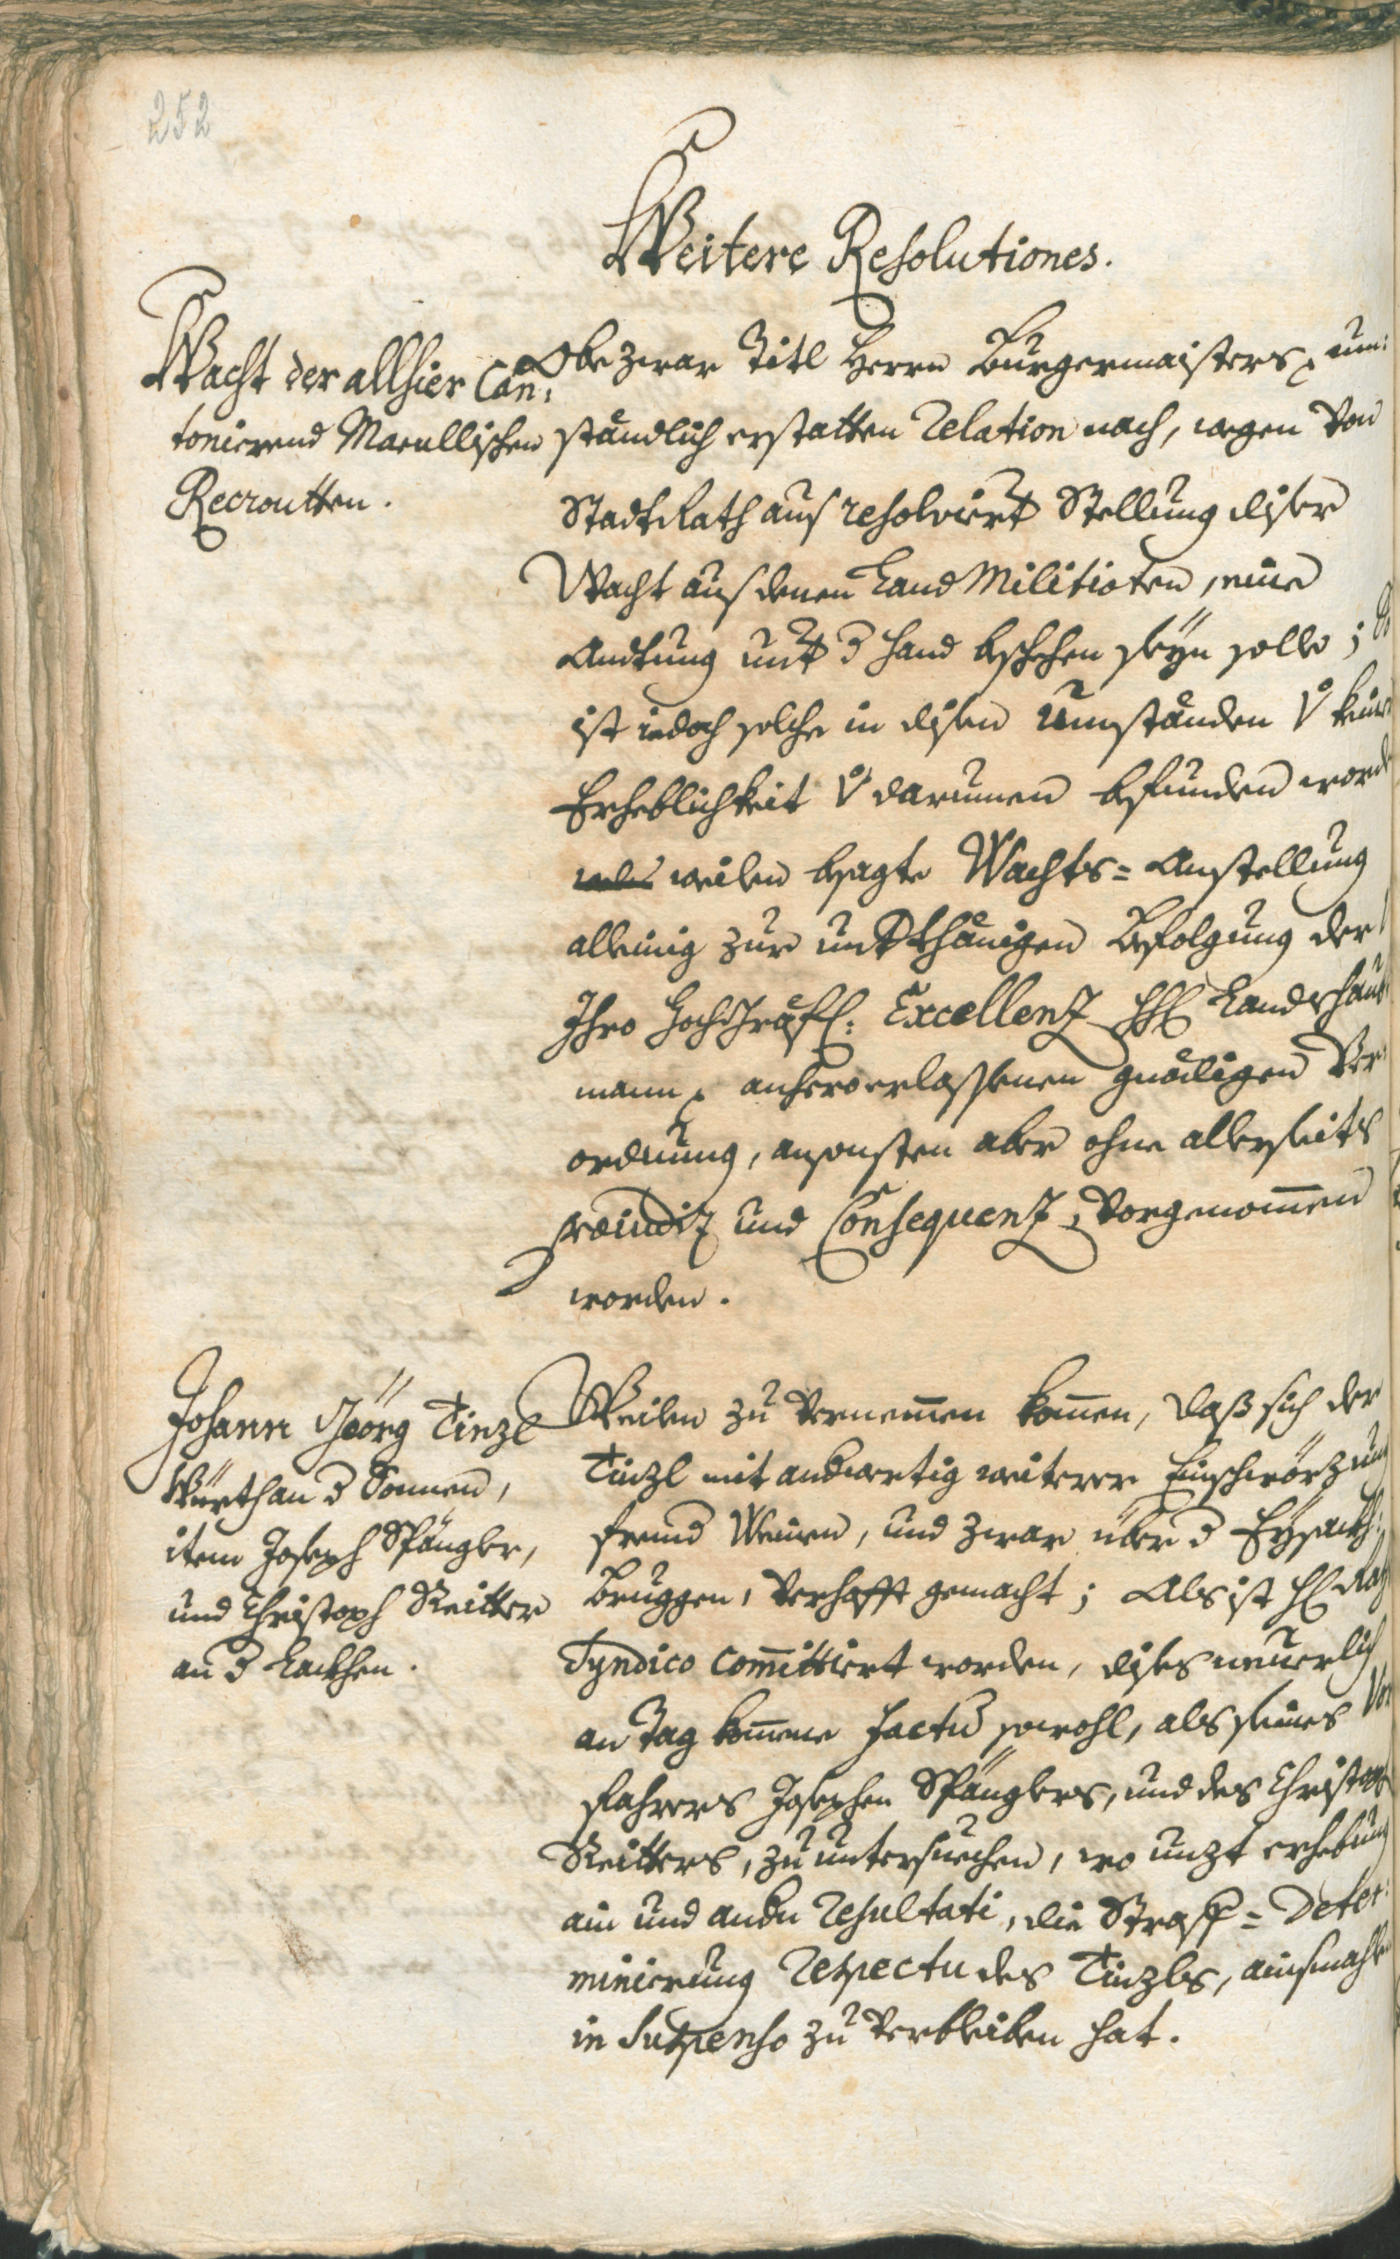 252
Weitere Resolutiones.
Wacht der allhier Can,
tonierend Marullischen
Recroutten.
Obe zwar Titl Herrn Burgermaisters um:
ständlich erstatten Relation nach, wegen von
StadtRath aus resolviert Stellung diser
Wacht aus denen Land Militioten, eine
Andtung unt d Hand beschehen seyn solle;
ist iedoch solche in disen Umständen v keiner
Erheblichkeit v darumen befunden word
weilen besagte Wachts= Anstellung
alleinig zur untthänigen Befolgung der
Ihro HochGräfl: Excellenz HH Landshaubt
mann anhero erlassenen gnädigen Ver
ordnung, ansonsten aber ohne allerseits
præiudiz und Consequenz, vorgenommen
worden.
Johann Georg Tinzl
Würth an d Sonnen,
item Joseph Spängler,
und Christoph Reitter
an d Lackhen.
Weilen zu vernemmen kommen, daß sich der
Tinzl mit anderwertig weiterer Einschwörzung
fremd Weinen, und zwar über d Eysackh:
Bruggen, verhafft gemacht; Als ist H Rath
Syndico committiert worden, dises neuerlich
an Tag komene Factu sowohl, als seines Vor
fahrers Josephen Spänglers, und des Christoph
Reitters, zu untersuechen, wo unzt erhebung
ain und andn Resultati, die Straff= Deter
minierung Respectu des Tinzls, ainsmahls
in Suspenso zu verbleiben hat.